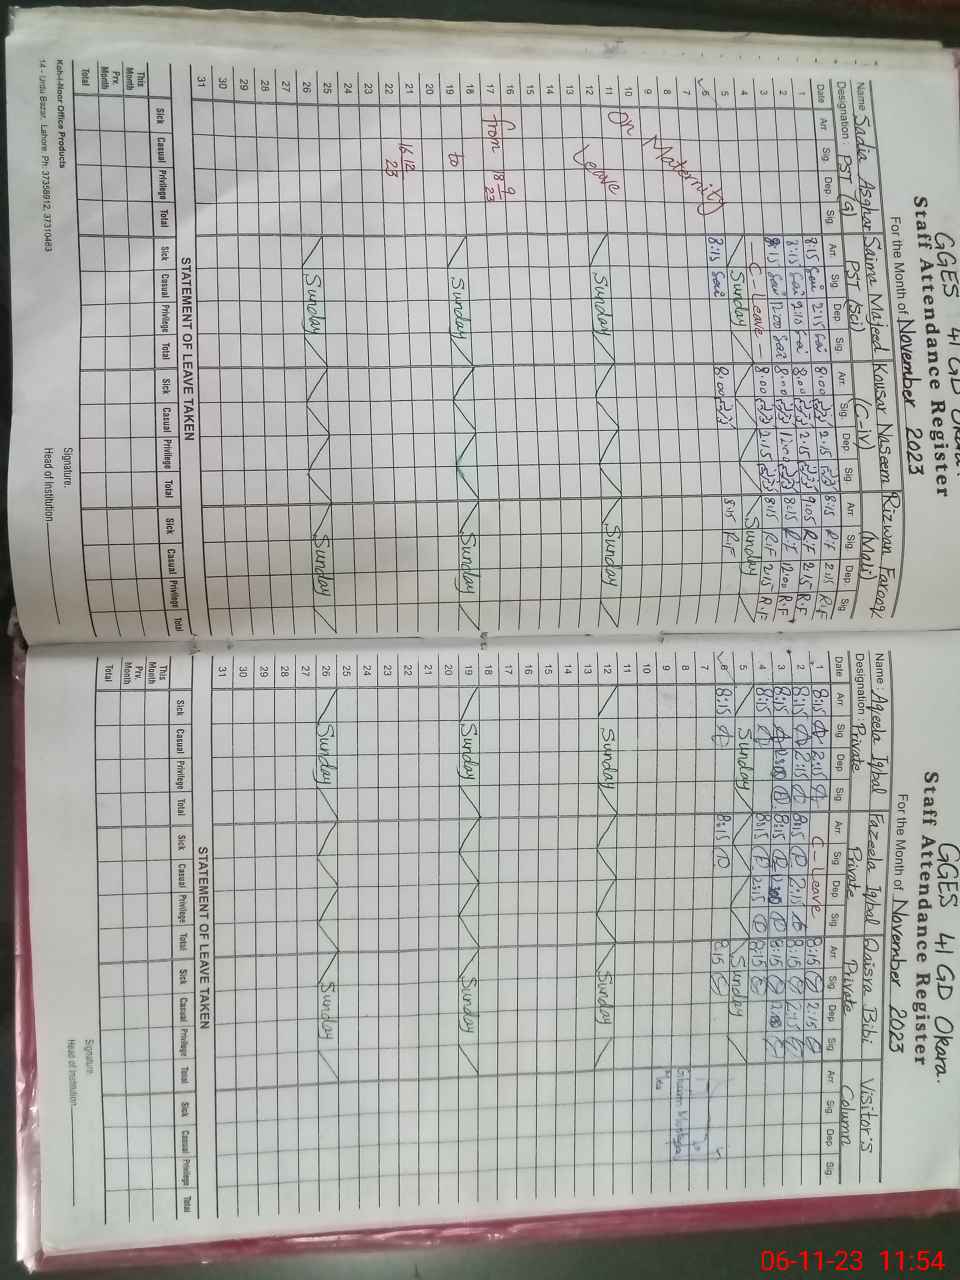 GGES 41 GD Okara.
Staff Attendance Register
For the Month of November 2023
Name Sadia Asghar Saima Majeed Kousar Naseem Rizwan Farooq
Designation: PST (G) PST (Sci) (C-iv) (Mali)
Date Arr. Sig. Dep. Sig. Arr. Sig. Dep. Sig. Arr. Sig. Dep. Sig. Arr. Sig. Dep. Sig.
1 8:15 Sai 2:15 Sai 8:00 2:15 8:15 R.F 2:15 R.F
2 8:15 Sai 2:15 Sai 8:00 2:15 9:05 R.F 2:15 R.F
3 8:15 Sai 12:00 Sai 8:00 12:00 8:15 R.F 12:00 R.F
4 C-Leave 8:00 2:15 8:15 R.F 2:15 R.F
5 Sunday Sunday
6 8:15 Sai 8:00 8:15 R.F
7
8
9
10
11
12 Sunday Sunday
13
14
15
16
17
18
19 Sunday Sunday
20
21
22
23
24
25
26 Sunday Sunday
27
28
29
30
31
On Maternity
Leave
from 18 9 23
to
16 12 23
STATEMENT OF LEAVE TAKEN
Sick Casual Privilege Total Sick Casual Privilege Total Sick Casual Privilege Total Sick Casual Privilege Total
This Month
Prv. Month
Total
Signature.
Head of Institution
Koh-I-Noor Office Products
14 - Urdu Bazar, Lahore. Ph: 37356912, 37310483
GGES 41 GD Okara.
Staff Attendance Register
For the Month of November 2023
Name: Aqeela Iqbal Fazeela Iqbal Qaisra Bibi Visitor's
Designation: Private Private Private Column
Date Arr. Sig. Dep. Sig. Arr. Sig. Dep. Sig. Arr. Sig. Dep. Sig. Arr. Sig. Dep. Sig.
1 8:15 2:15 C-Leave 8:15 2:15
2 8:15 2:15 8:15 2:15 8:15 2:15
3 8:15 8:15 8:15
4 8:15 8:15 2:15 8:15
5 Sunday Sunday
6 8:15 8:15 8:15
7
8
9
10
11
12 Sunday Sunday
13
14
15
16
17
18
19 Sunday Sunday
20
21
22
23
24
25
26 Sunday Sunday
27
28
29
30
31
STATEMENT OF LEAVE TAKEN
Sick Casual Privilege Total Sick Casual Privilege Total Sick Casual Privilege Total Sick Casual Privilege Total
This Month
Prv. Month
Total
Signature.
Head of Institution
06-11-23 11:54